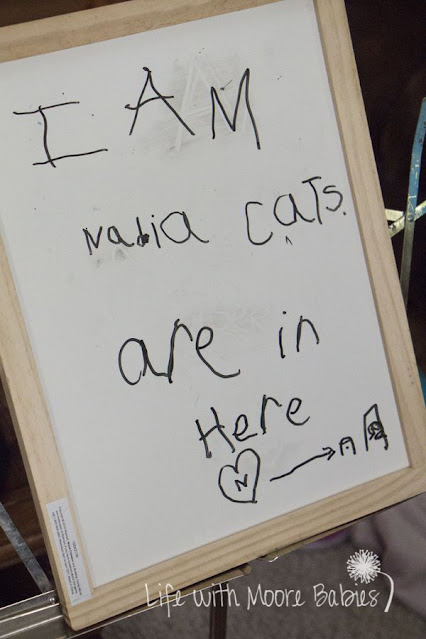 I AM
Nadia CATS.
are in
Here
N
Life with Moore Babies